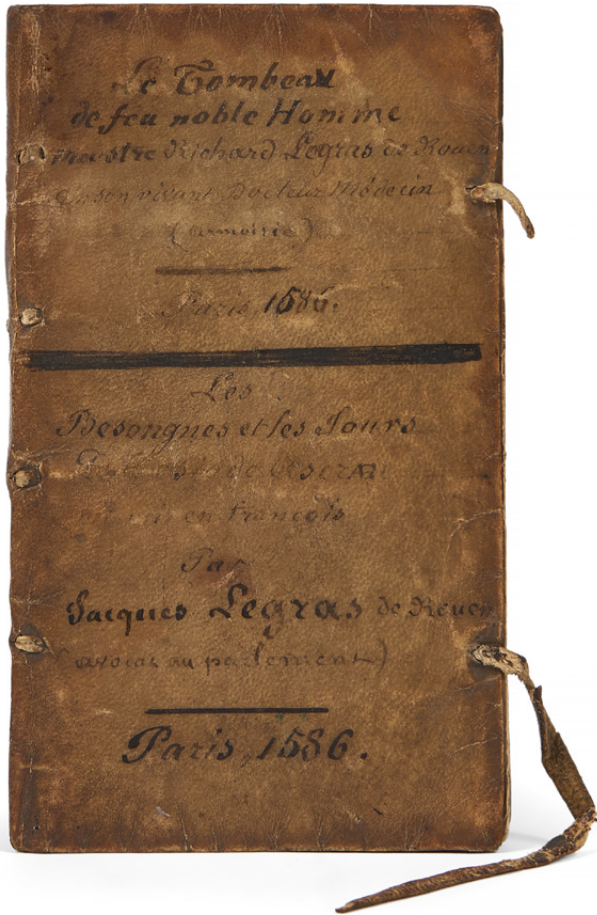 Le Tombeau
de feu noble Homme
maistre Richard Legras de Rouen
en son vivant Docteur Médecin
(armoirie)
Paris, 1586.
Les
Besongnes et les Jours
en françois
Par
Jacques Legras de Rouen
(avocat au parlement)
Paris, 1586.